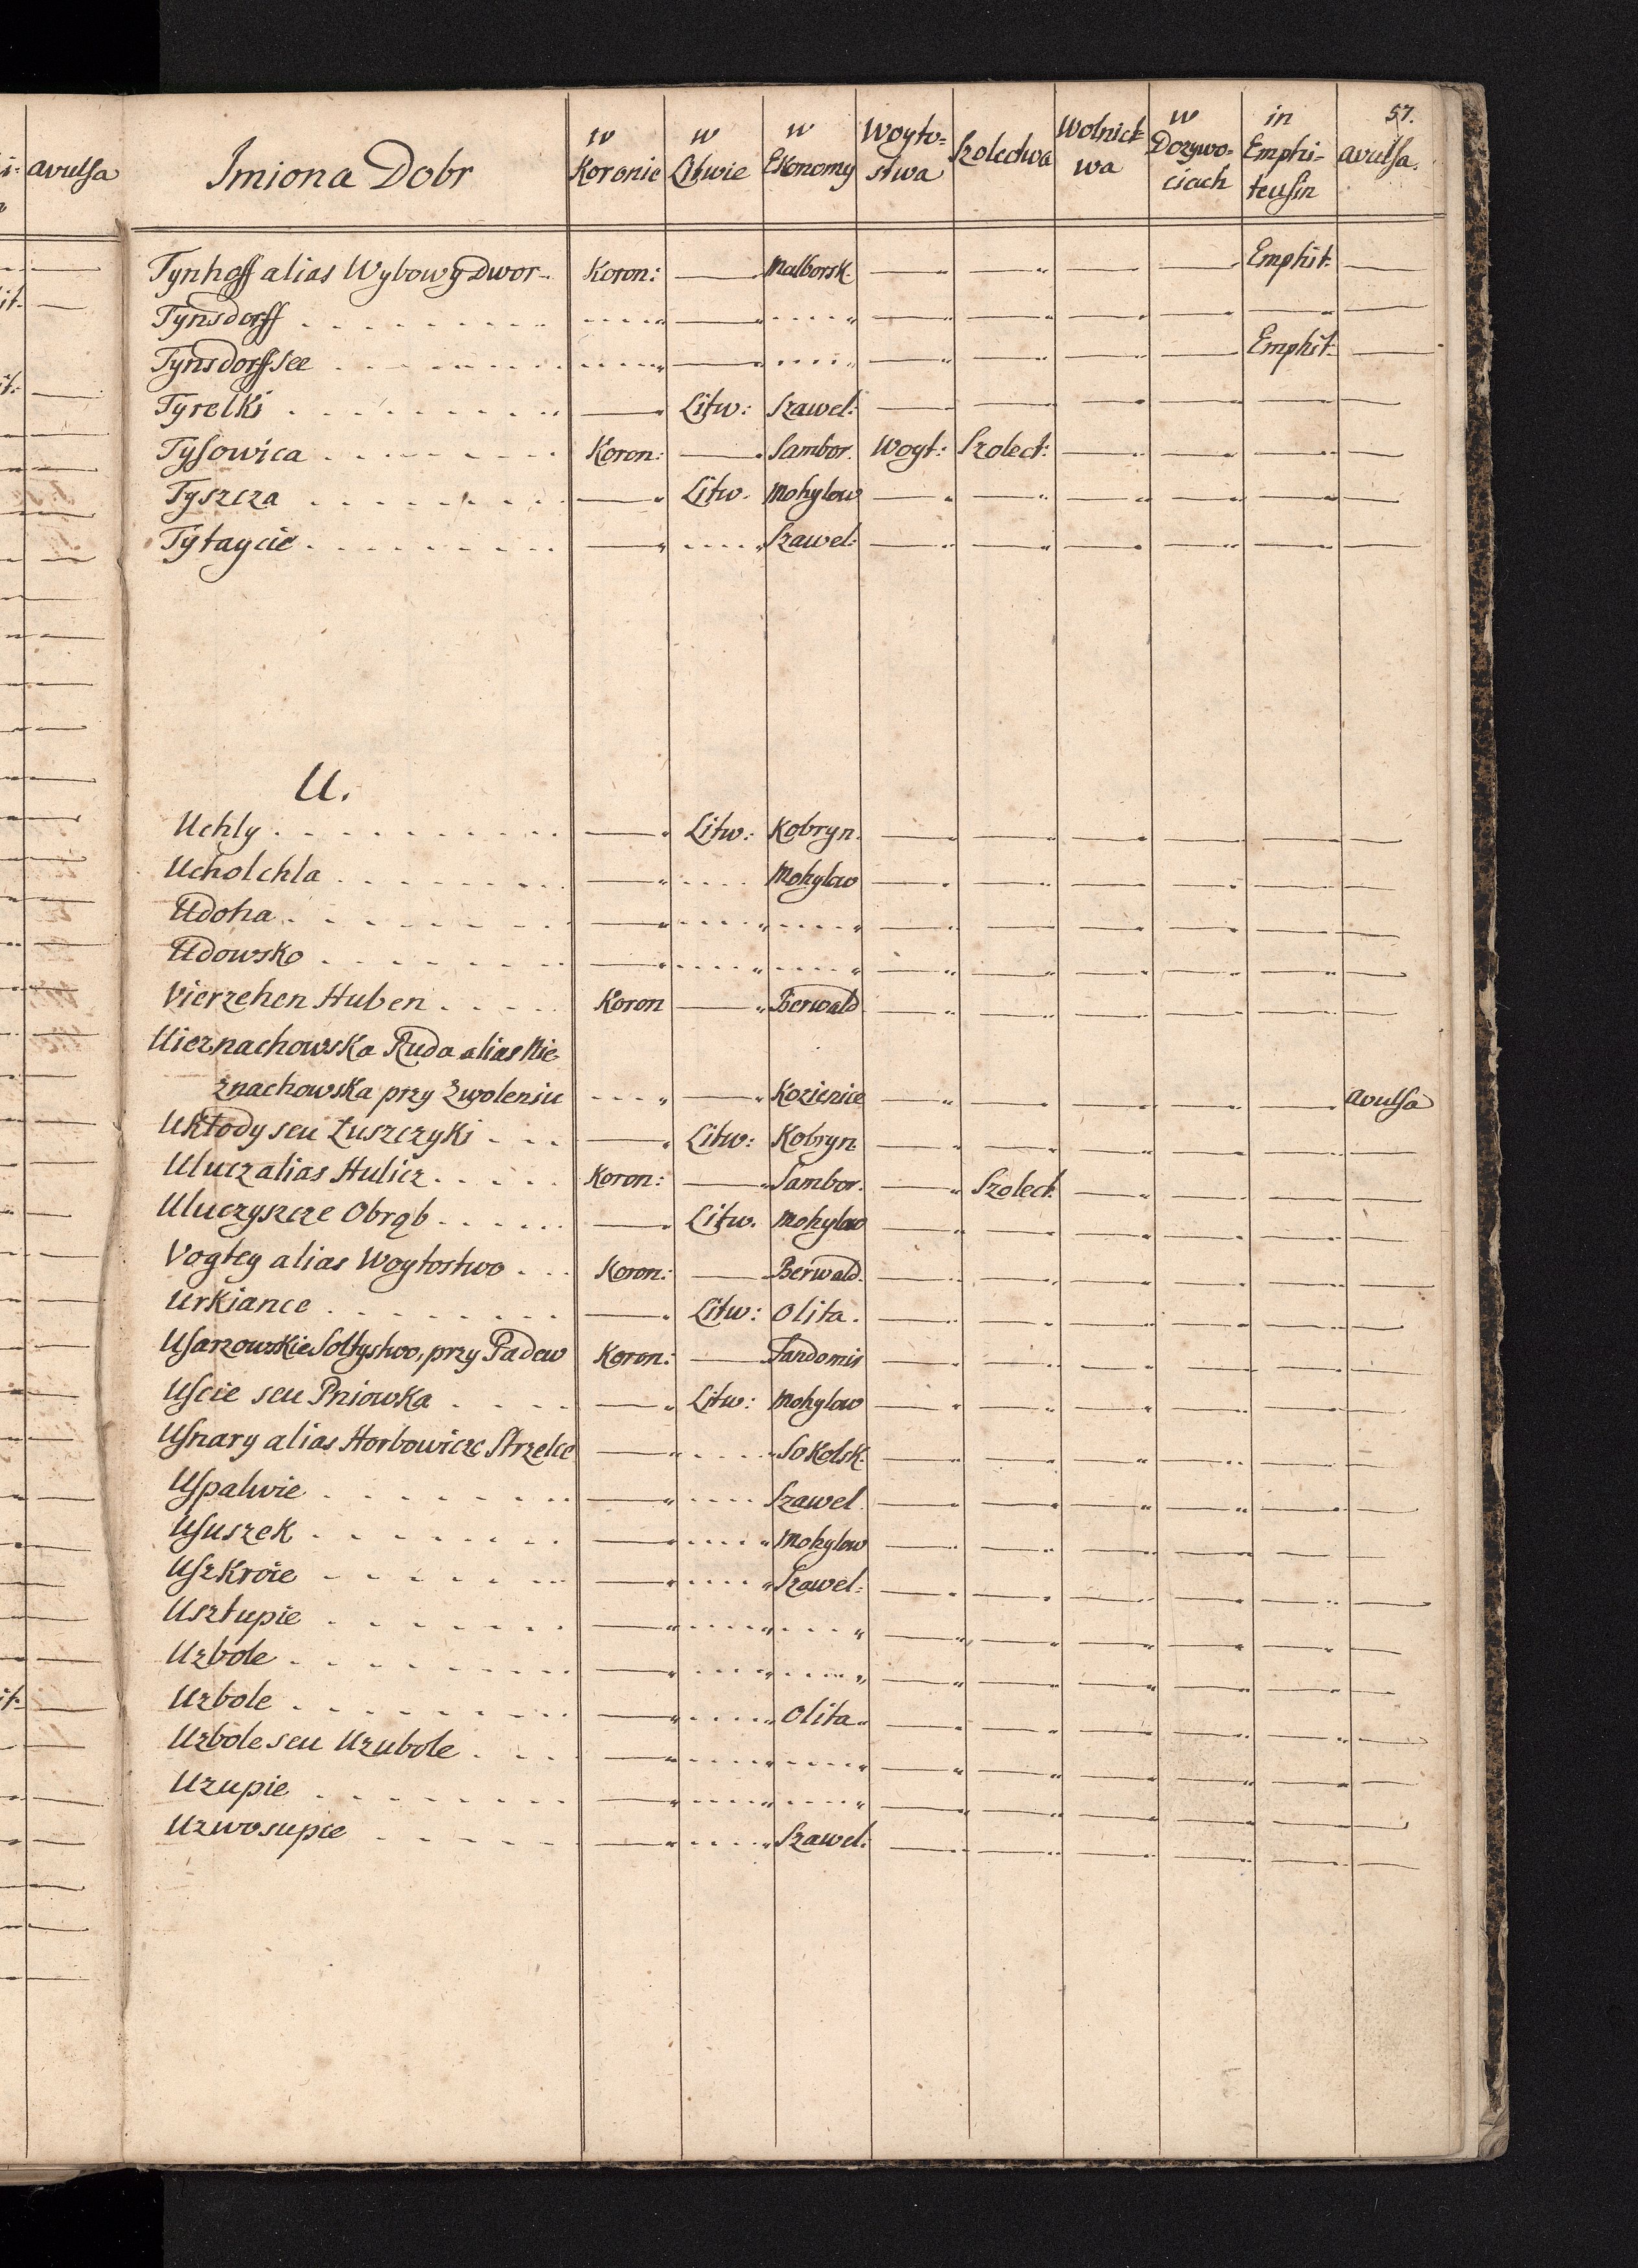 57.
Imiona Dobr | w Koronie | w Litwie | w Ekonomy | Woyto=stwa | Szolectwa | Wolnict=wa | w Dozywo=ciach | in Emphi-teusin | avulsa.
Tynhoff alias Wybowy Dwor - Koron: — Malborsk. — — — — Emphit: —
Tynsdorff . . . . . . . . . — . . . . — — — — — —
Tynsdorffsee . . . . . . . . . — . . . . — — — — Emphit: —
Tyrelki . . . . . — Litw: Szawel: — — — — — —
Tysowica . . . . . Koron: — Sambor. Woyt: Szolect: — — — —
Tyszcza . . . . . — Litw. Mohylow — — — — — —
Tytaycie . . . . . — . . . . Szawel: — — — — — —
U.
Uchly . . . . . — Litw: Kobryn. — — — — — —
Ucholchla . . . . . — . . . . Mohylow — — — — — —
Udoha . . . . . — . . . . . . . . — — — — — —
Udowsko . . . . . — . . . . . . . . — — — — — —
Vierzehen Huben . . . . Koron — Berwald — — — — — —
Uieznachowska Ruda alias Nie-
znachowska przy Zwoleniu . . . . — Kozienice — — — — — avulsa
Uklody seu Łuszczyki . . . — Litw: Kobryn — — — — — —
Ulucz alias Hulicz . . . . . Koron: — Sambor. — Szolect. — — — —
Uluczyszcze Obrąb . . . . . — Litw. Mohylow — — — — — —
Vogtey alias Woytostwo . . Koron: — Berwald. — — — — — —
Urkiance . . . . . — Litw: Olita. — — — — — —
Usarzowskie Soltystwo, przy Padew Koron: — Sandomir — — — — — —
Uscie seu Pniowka . . . . — Litw: Mohylow — — — — — —
Usnary alias Horbowicze Strzelce — . . . . Sokolsk. — — — — — —
Uspalwie . . . . . — . . . . Szawel. — — — — — —
Ususzek . . . . . — . . . . Mohylow — — — — — —
Uszkroie . . . . . — . . . . Szawel: — — — — — —
Usztupie . . . . . — . . . . . . . . — — — — — —
Uzbole . . . . . — . . . . . . . . — — — — — —
Uzbole . . . . . — . . . . Olita — — — — — —
Uzbole seu Uzubole . . . . — . . . . . . . . — — — — — —
Uzupie . . . . . — . . . . . . . . — — — — — —
Uzwosupie . . . . . — . . . . Szawel: — — — — — —
avulsa